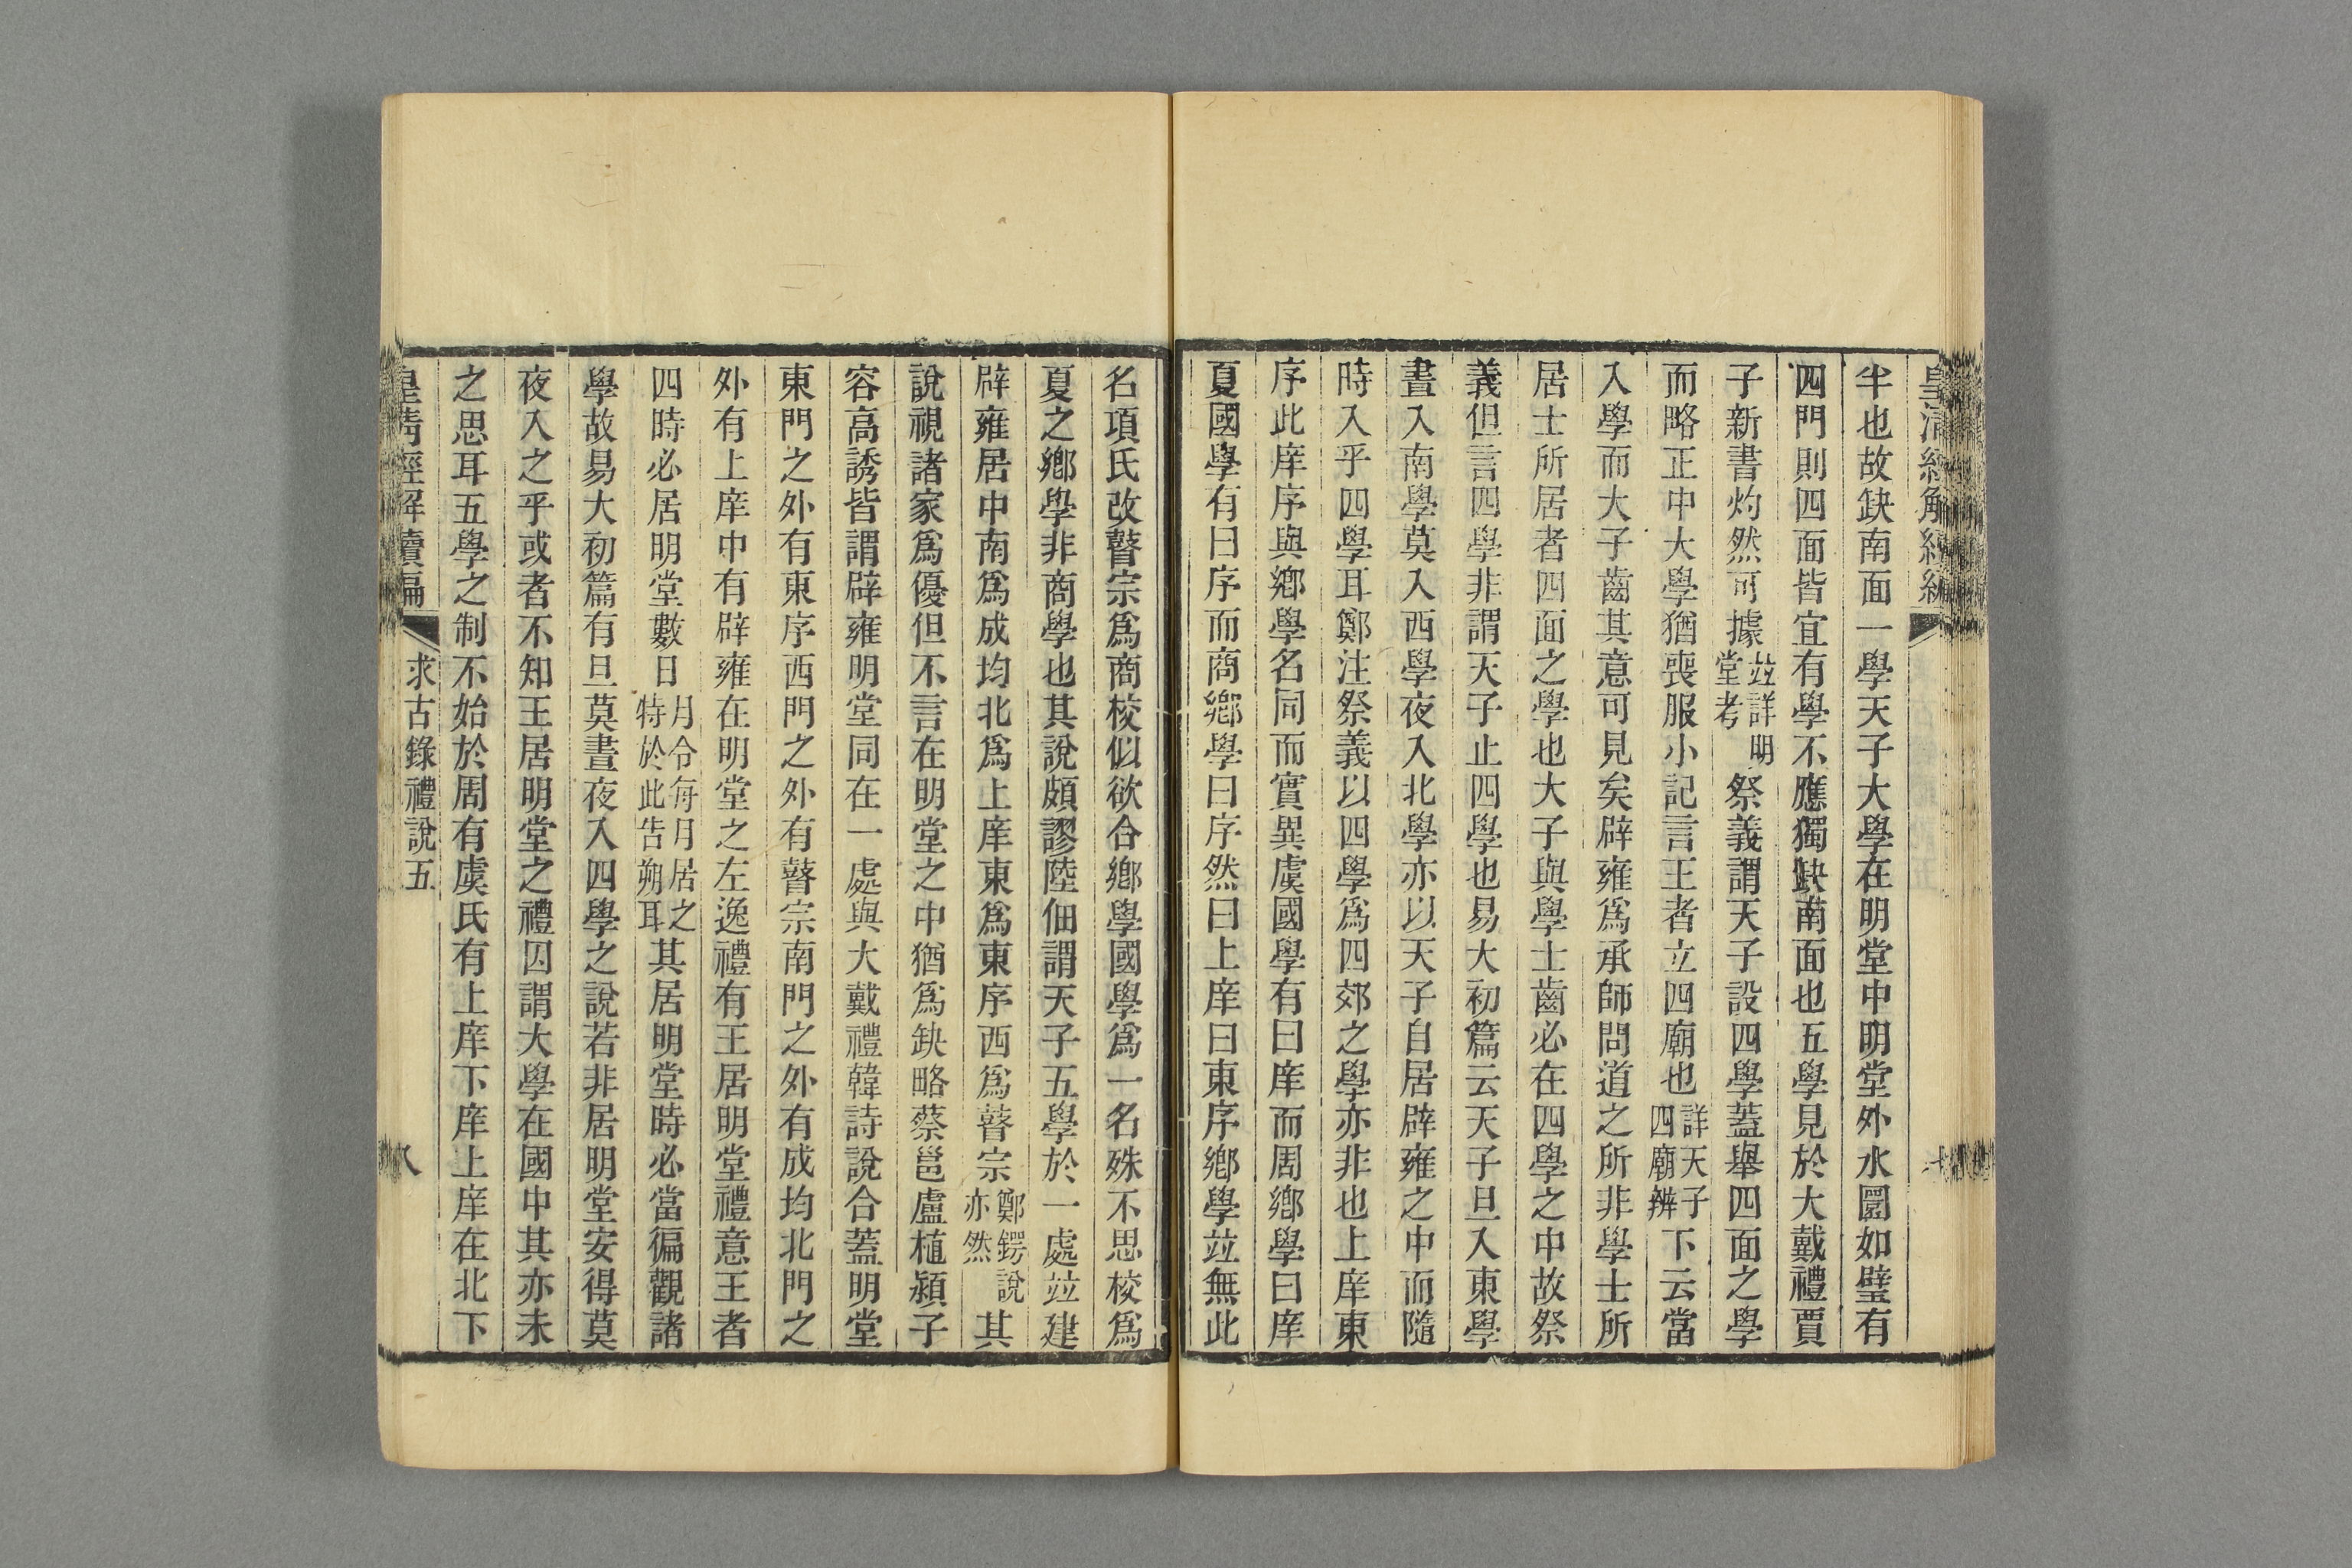 皇清經解續編
半也故缺南面一學天子大學在明堂中明堂外水圜如璧有
四門則四面皆宜有學不應獨缺南面也五學見於大戴禮賈
子新書灼然可據竝詳明堂考祭義謂天子設四學蓋舉四面之學
而略正中大學猶喪服小記言王者立四廟也詳天子四廟辨下云當
入學而大子齒其意可見矣辟雍爲承師問道之所非學士所
居士所居者四面之學也大子與學士齒必在四學之中故祭
義但言四學非謂天子止四學也易大初篇云天子旦入東學
晝入南學莫入西學夜入北學亦以天子自居辟雍之中而隨
時入乎四學耳鄭注祭義以四學爲四郊之學亦非也上庠東
序此庠序與鄉學名同而實異虞國學有曰庠而周鄉學曰庠
夏國學有曰序而商鄉學曰序然曰上庠曰東序鄉學竝無此
名項氏改瞽宗爲商校似欲合鄉學國學爲一名殊不思校爲
夏之鄉學非商學也其說頗謬陸佃謂天子五學於一處竝建
辟雍居中南爲成均北爲上庠東爲東序西爲瞽宗鄭鍔說亦然其
說視諸家爲優但不言在明堂之中猶爲缺略蔡邕盧植潁子
容高誘皆謂辟雍明堂同在一處與大戴禮韓詩說合蓋明堂
東門之外有東序西門之外有瞽宗南門之外有成均北門之
外有上庠中有辟雍在明堂之左逸禮有王居明堂禮意王者
四時必居明堂數日月令每月居之特於此告朔耳其居明堂時必當徧觀諸
學故易大初篇有旦莫晝夜入四學之說若非居明堂安得莫
夜入之乎或者不知王居明堂之禮因謂大學在國中其亦未
之思耳五學之制不始於周有虞氏有上庠下庠上庠在北下
皇清經解續編
求古錄禮說五
八